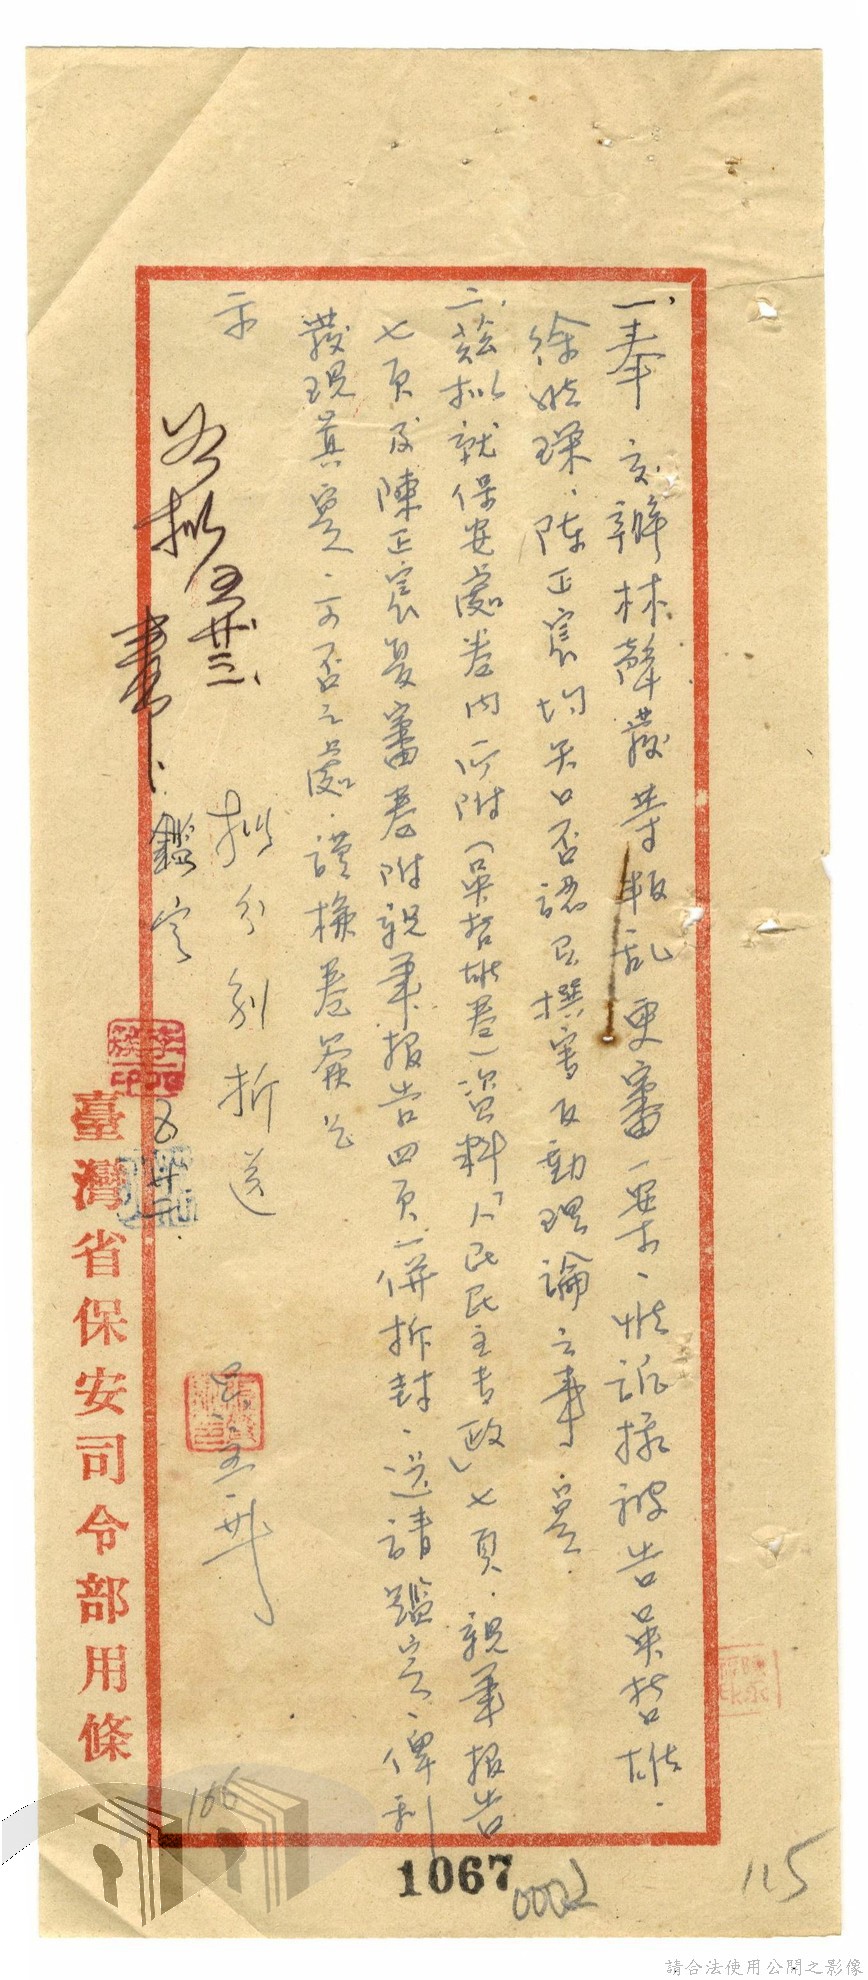 一、奉 交辦林聲發等叛乱更審一案、惟訊據被告吳哲雄、
徐煃琛、陳正宸均矢口否認有撰寫反動理論之事實、
二、茲擬就保安處卷內所附(吳哲雄卷)資料「人民民主专政」七頁、親筆報告
七頁及陳正宸复審卷附親筆报告四頁、一併拆封、送請鑑定、俾利
發現真實、可否之處、謹檢卷簽乞
示
如拟 五廿三、
擬分别拆送
鑑定
臺灣省保安司令部用條
166
1067
0002
115
請合法使用公開之影像